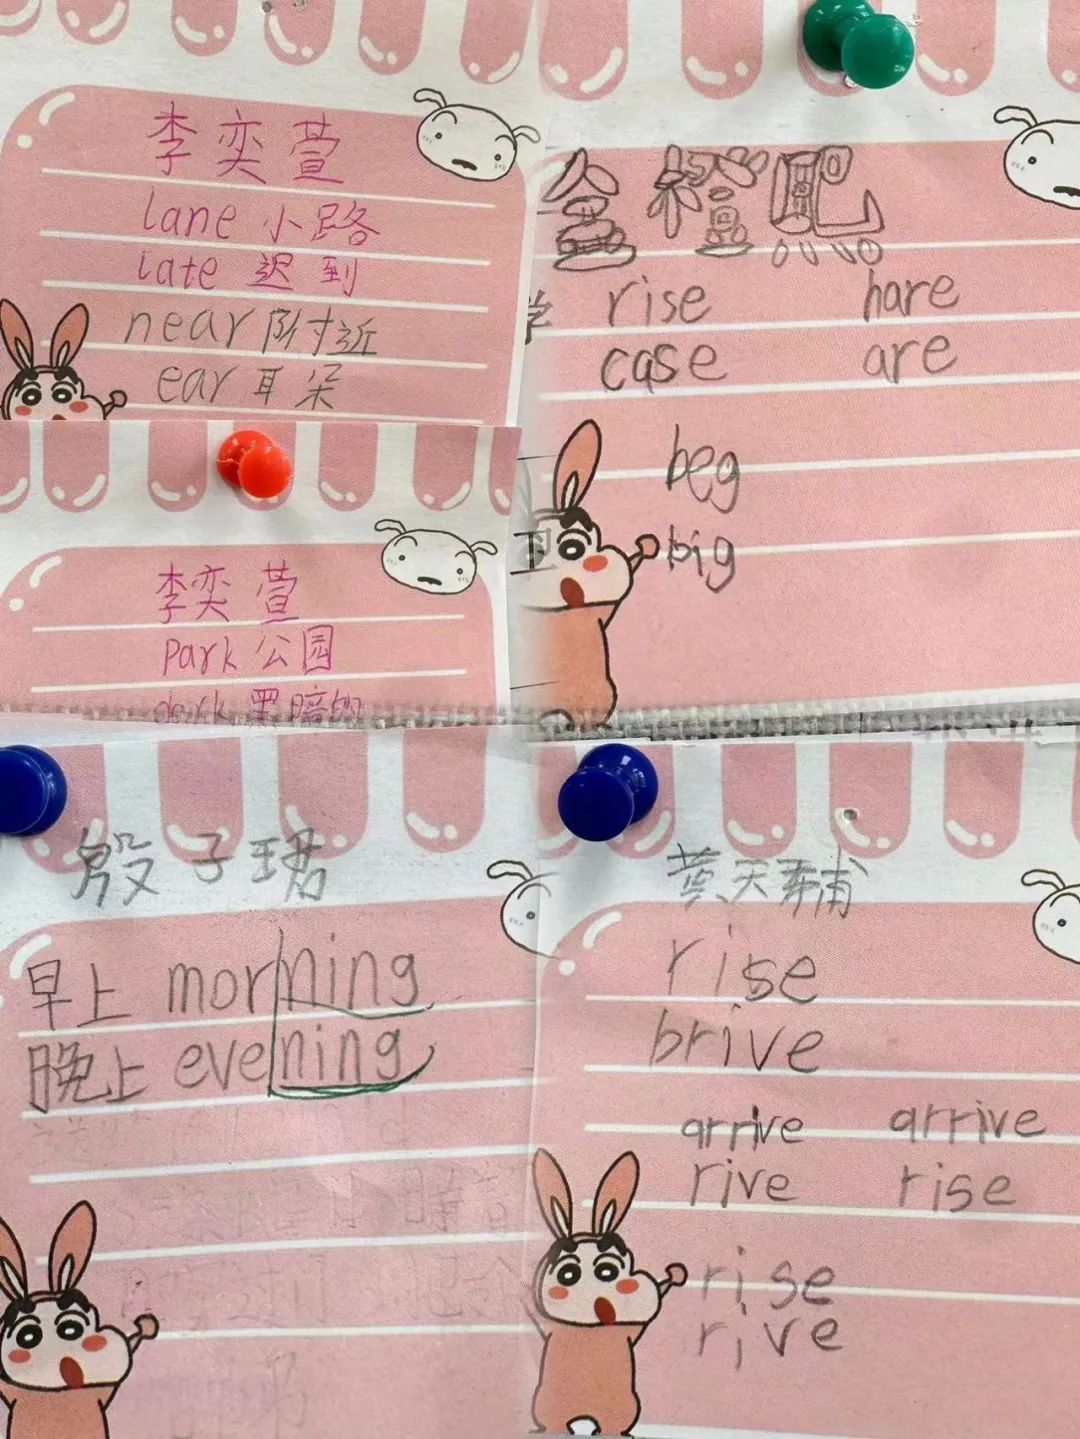 李奕萱
lane 小路
late 迟到
near 附近
ear 耳朵
李奕萱
park 公园
dark 黑暗的
金橙熙
rise hare
case are
beg
big
殷子珺
早上 morning
晚上 evening
黄天辅
rise
brive
arrive arrive
rive rise
rise
rive